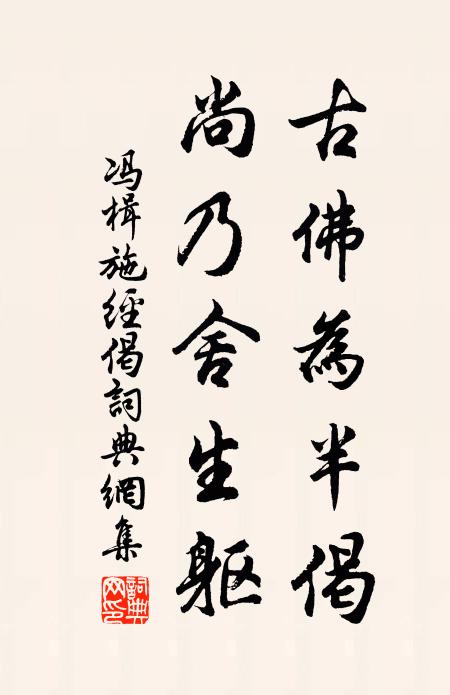 古佛為半偈
尚乃舍生軀
冯楫施經偈詞典網集
詞典
网印